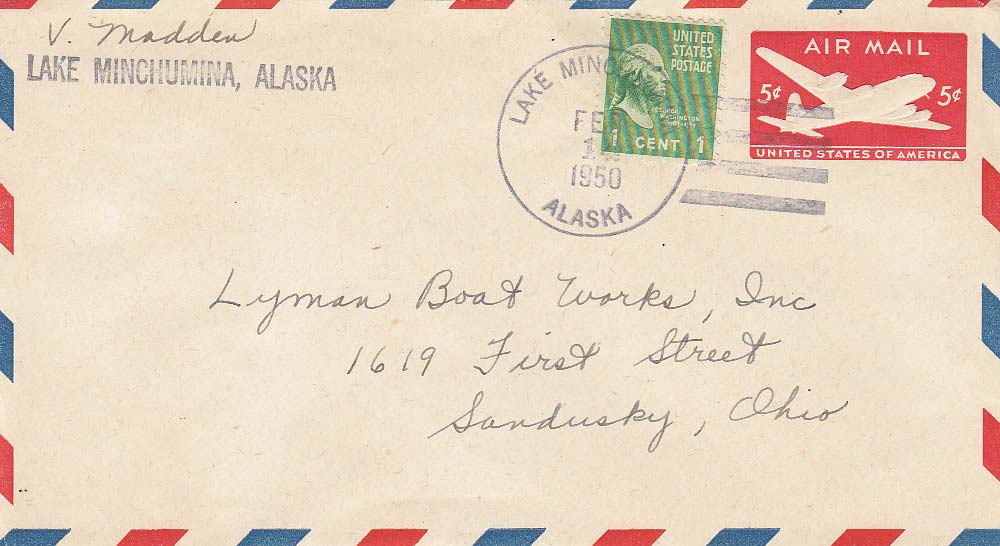 V. Madden
LAKE MINCHUMINA, ALASKA
LAKE
FEB
1950
ALASKA
UNITED
STATES
POSTAGE
GEORGE
WASHINGTON
1 CENT 1
AIR MAIL
5¢ 5¢
UNITED STATES OF AMERICA
Lyman Boat Works, Inc
1619 First Street
Sandusky, Ohio